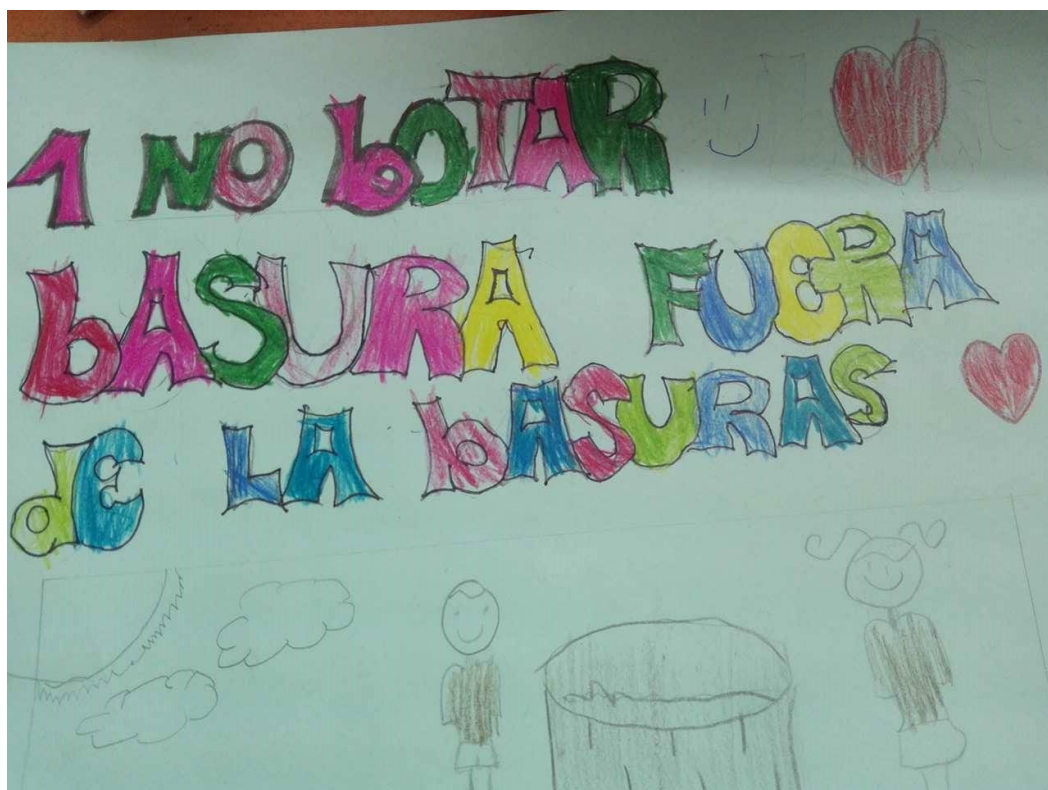 1 NO bOTAR
bASURA FUERA
dE LA bASURAS